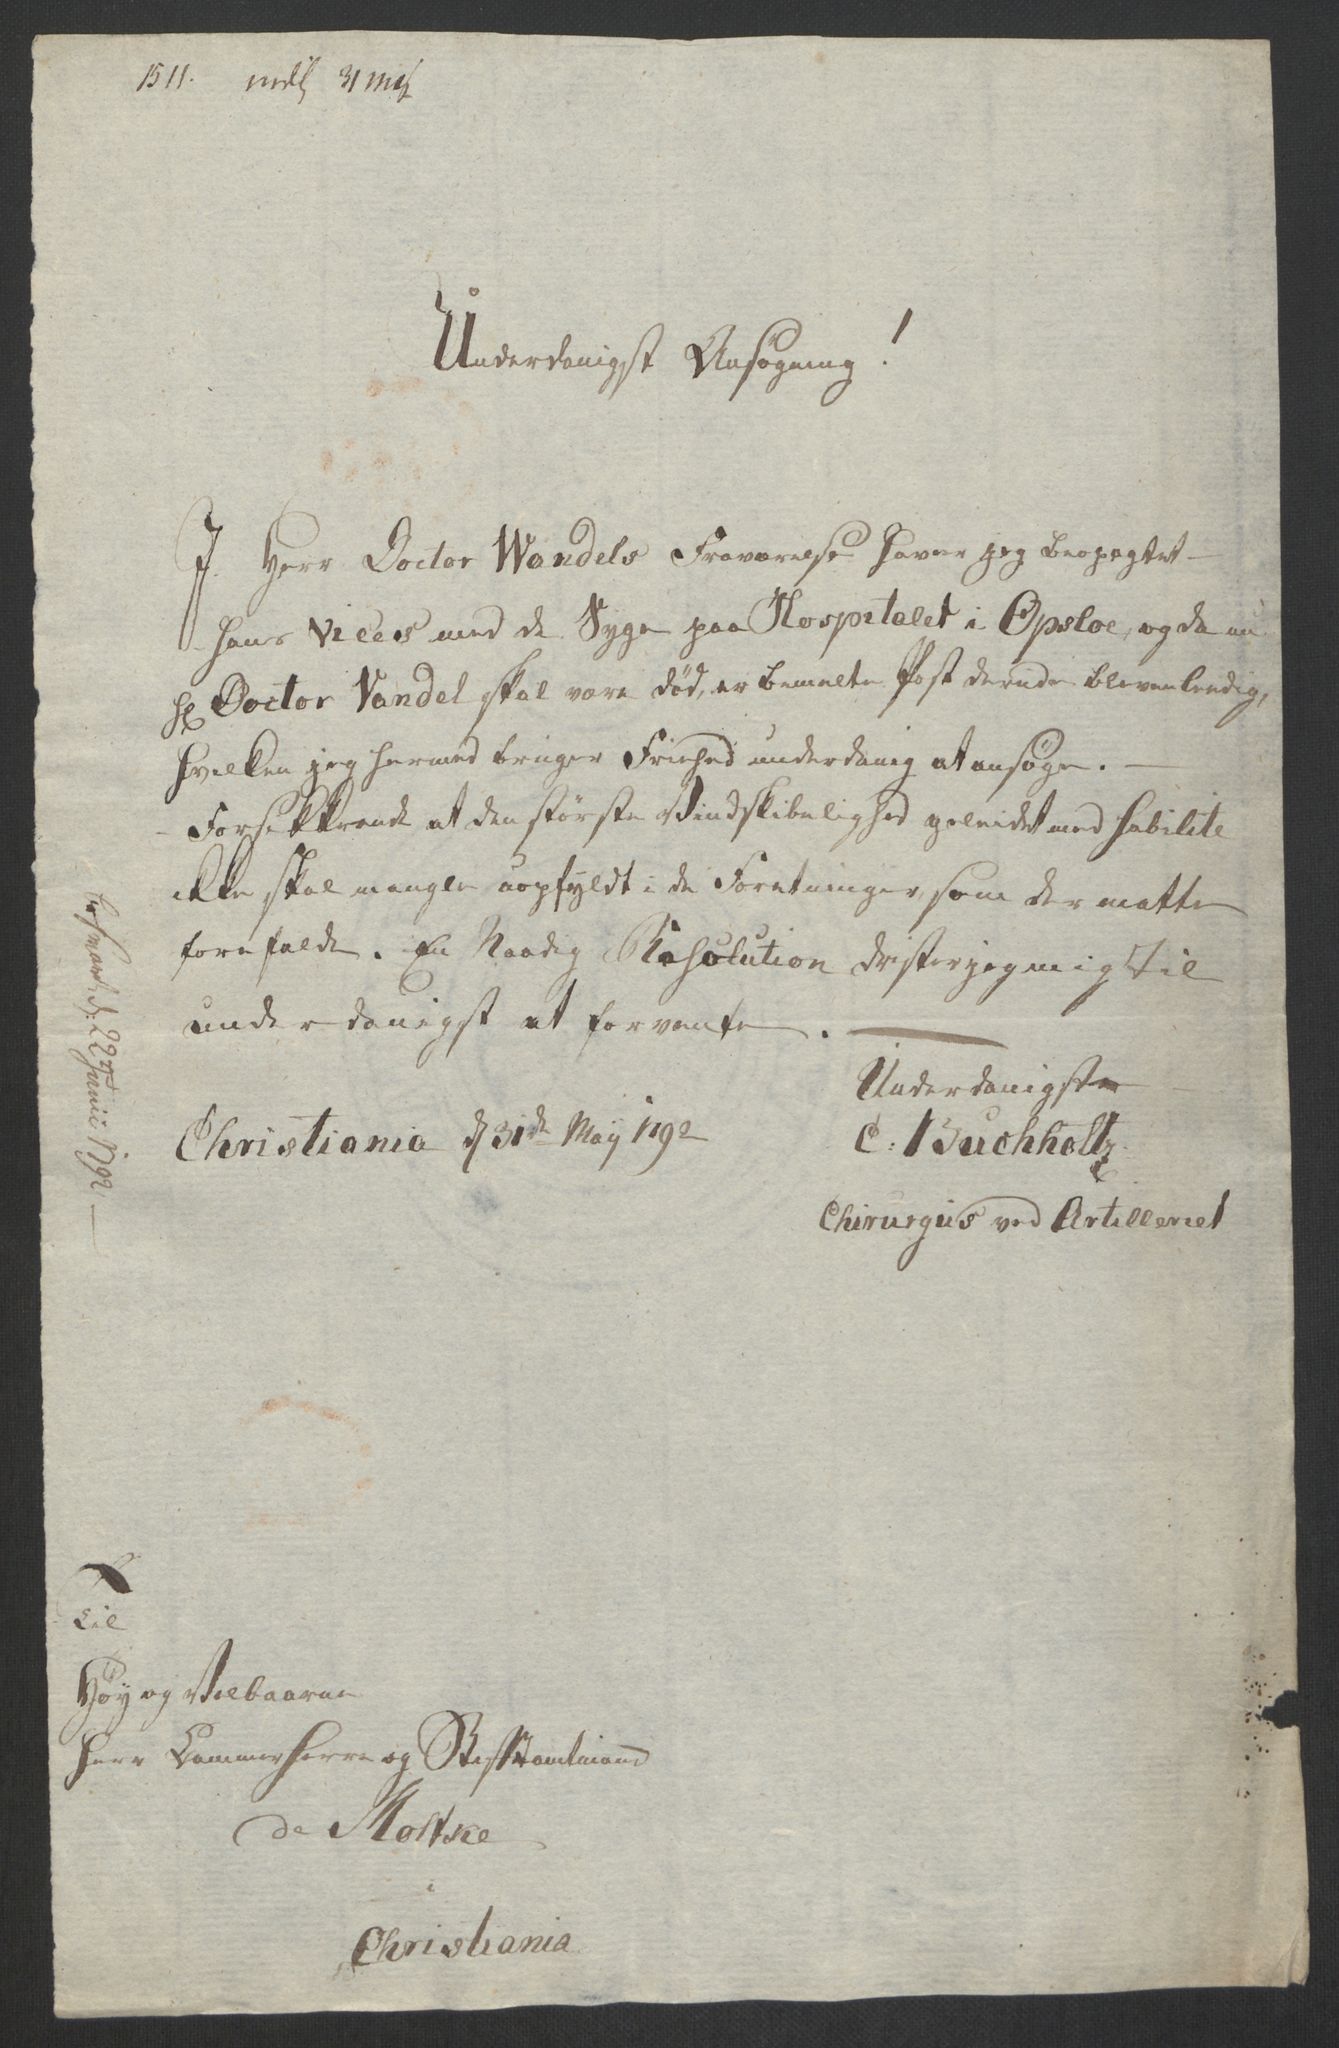 1511. indk 31 May
Underdanigst Ansøgning!
I Herr Doctor Wandels Fraværelse haver jeg beopagtet
hans vices med de Syge paa Hospitalet i Opsloe, og da nu
Hr Doctor Vandel skal være død, er bemelte Post derude bleven leedig,
hvilken jeg hermed bruger Friehed underdanig at ansøge. —
Forsikkrende at den største Vindskibelighed geleidet med habilite
ikke skal mangle uopfyldt i de Forretninger, som der matte
forefalde. En Naadig Resolution drister jeg mig til
underdanigst at forvente. —
Underdanigste
Christiania d 31de May 1792
C. Buchholtz
Chirurgus ved Artilleriet
besvaret d. 22de Junii 1792 —
Til
Høy og Velbaarne
Herr Cammerherre og Stiftamtmand
de Moltke
i
Christiania